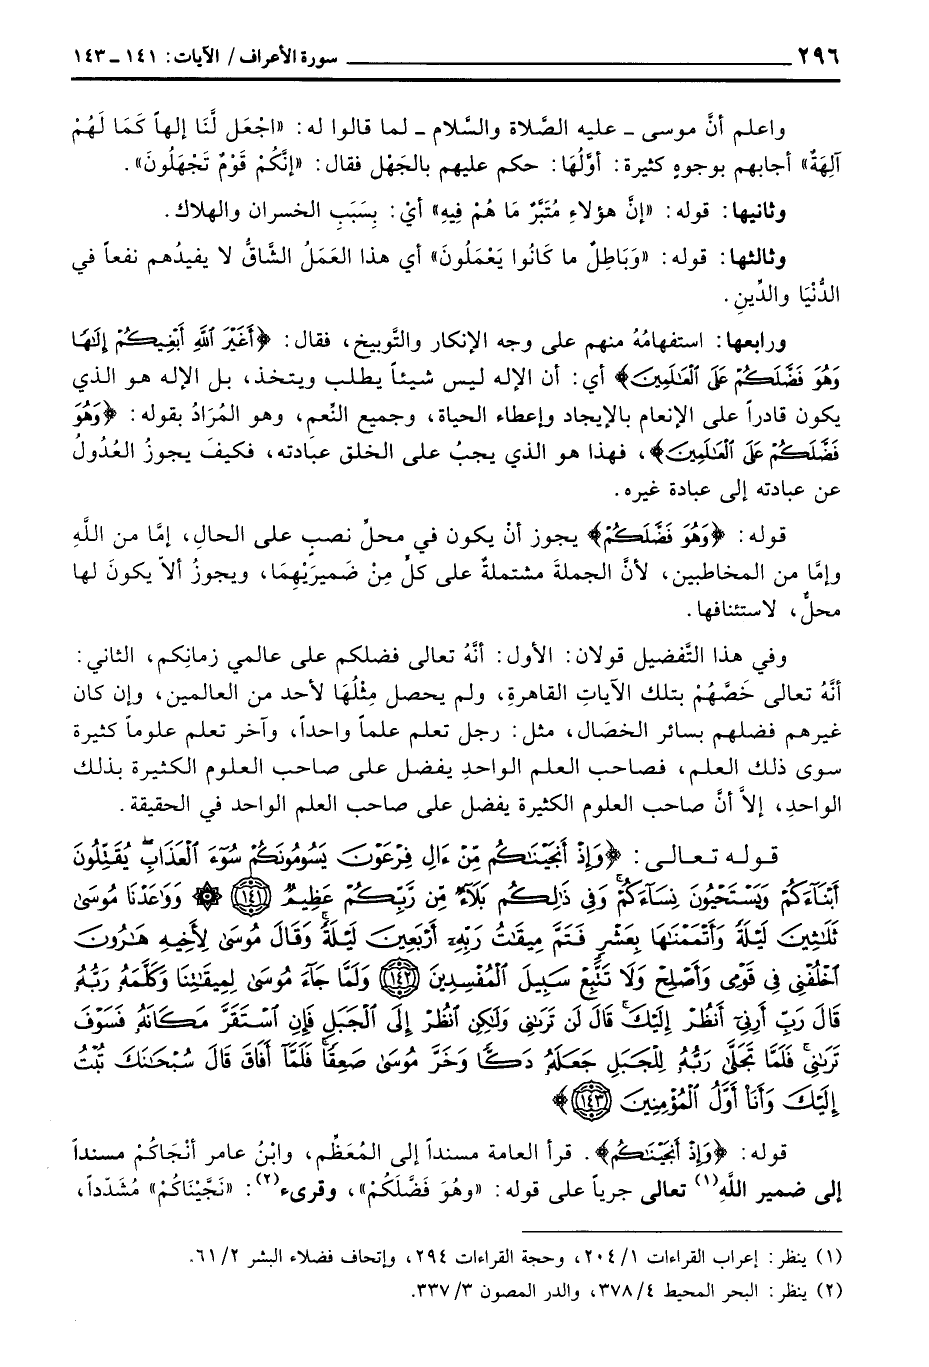 ٢٩٦ ــــــــــــــــــــ سورة الأعراف / الآيات: ١٤١ ـ ١٤٣
واعلم أنَّ موسى ـ عليه الصَّلاة والسَّلام ـ لما قالوا له: «اجْعَل لَّنَا إلهاً كَمَا لَهُمْ
آلِهَةٌ» أجابهم بوجوهٍ كثيرة: أوَّلُهَا: حكم عليهم بالجَهْل فقال: «إنَّكُمْ قَوْمٌ تَجْهَلُونَ».
وثانيها: قوله: «إنَّ هؤلاءِ مُتَبَّرٌ مَا هُمْ فِيهِ» أيْ: بِسَبَبِ الخسران والهلاك.
وثالثها: قوله: «وَبَاطِلٌ ما كَانُوا يَعْمَلُونَ» أي هذا العَمَلُ الشَّاقُّ لا يفيدُهم نفعاً في
الدُّنْيَا والدِّينِ.
ورابعها: استفهامُهُ منهم على وجه الإنكار والتَّوبيخ، فقال: ﴿أَغَيْرَ ٱللَّهِ أَبْغِيكُمْ إِلَٰهًا
وَهُوَ فَضَّلَكُمْ عَلَى ٱلْعَٰلَمِينَ﴾ أي: أن الإله ليس شيئاً يطلب ويتخذ، بل الإله هو الذي
يكون قادراً على الإنعام بالإيجاد وإعطاء الحياة، وجميع النِّعم، وهو المُرَادُ بقوله: ﴿وَهُوَ
فَضَّلَكُمْ عَلَى ٱلْعَٰلَمِينَ﴾، فهذا هو الذي يجبُ على الخلق عبادته، فكيفَ يجوزُ العُدُولُ
عن عبادته إلى عبادة غيره.
قوله: ﴿وَهُوَ فَضَّلَكُمْ﴾ يجوز أنْ يكون في محلِّ نصبٍ على الحالِ، إمَّا من اللَّهِ
وإمَّا من المخاطبين، لأنَّ الجملةَ مشتملةٌ على كلٍّ مِنْ ضَمِيرَيْهِمَا، ويجوزُ ألاَّ يكونَ لها
محلٌّ، لاستئنافها.
وفي هذا التَّفضيل قولان: الأول: أنَّهُ تعالى فضلكم على عالمي زمانِكم، الثاني:
أنَّهُ تعالى خَصَّهُمْ بتلك الآياتِ القاهرةِ، ولم يحصل مِثْلُهَا لأحد من العالمين، وإن كان
غيرهم فضلهم بسائر الخصَال، مثل: رجل تعلم علماً واحداً، وآخر تعلم علوماً كثيرة
سوى ذلك العلم، فصاحب العلم الواحدِ يفضل على صاحب العلوم الكثيرة بذلك
الواحدِ، إلاَّ أنَّ صاحب العلوم الكثيرة يفضل على صاحب العلم الواحد في الحقيقة.
قوله تعالى: ﴿وَإِذْ أَنجَيْنَٰكُم مِّنْ ءَالِ فِرْعَوْنَ يَسُومُونَكُمْ سُوٓءَ ٱلْعَذَابِ يُقَتِّلُونَ
أَبْنَآءَكُمْ وَيَسْتَحْيُونَ نِسَآءَكُمْ وَفِى ذَٰلِكُم بَلَآءٌ مِّن رَّبِّكُمْ عَظِيمٌ ﴿١٤١﴾ ۞ وَوَٰعَدْنَا مُوسَىٰ
ثَلَٰثِينَ لَيْلَةً وَأَتْمَمْنَٰهَا بِعَشْرٍ فَتَمَّ مِيقَٰتُ رَبِّهِۦٓ أَرْبَعِينَ لَيْلَةً وَقَالَ مُوسَىٰ لِأَخِيهِ هَٰرُونَ
ٱخْلُفْنِى فِى قَوْمِى وَأَصْلِحْ وَلَا تَتَّبِعْ سَبِيلَ ٱلْمُفْسِدِينَ ﴿١٤٢﴾ وَلَمَّا جَآءَ مُوسَىٰ لِمِيقَٰتِنَا وَكَلَّمَهُۥ رَبُّهُۥ
قَالَ رَبِّ أَرِنِىٓ أَنظُرْ إِلَيْكَ قَالَ لَن تَرَىٰنِى وَلَٰكِنِ ٱنظُرْ إِلَى ٱلْجَبَلِ فَإِنِ ٱسْتَقَرَّ مَكَانَهُۥ فَسَوْفَ
تَرَىٰنِى فَلَمَّا تَجَلَّىٰ رَبُّهُۥ لِلْجَبَلِ جَعَلَهُۥ دَكًّا وَخَرَّ مُوسَىٰ صَعِقًا فَلَمَّآ أَفَاقَ قَالَ سُبْحَٰنَكَ تُبْتُ
إِلَيْكَ وَأَنَا۠ أَوَّلُ ٱلْمُؤْمِنِينَ ﴿١٤٣﴾﴾
قوله: ﴿وَإِذْ أَنجَيْنَٰكُم﴾. قرأ العامة مسنداً إلى المُعَظِّم، وابْنُ عامر أنْجَاكُمْ مسنداً
إلى ضمير اللَّهِ(١) تعالى جرياً على قوله: «وهُوَ فَضَّلَكُمْ»، وقرىء(٢): «نَجَّيْنَاكُمْ» مُشَدّداً،
(١) ينظر: إعراب القراءات ١/ ٢٠٤، وحجة القراءات ٢٩٤، وإتحاف فضلاء البشر ٢/ ٦١.
(٢) ينظر: البحر المحيط ٤/ ٣٧٨، والدر المصون ٣/ ٣٣٧.